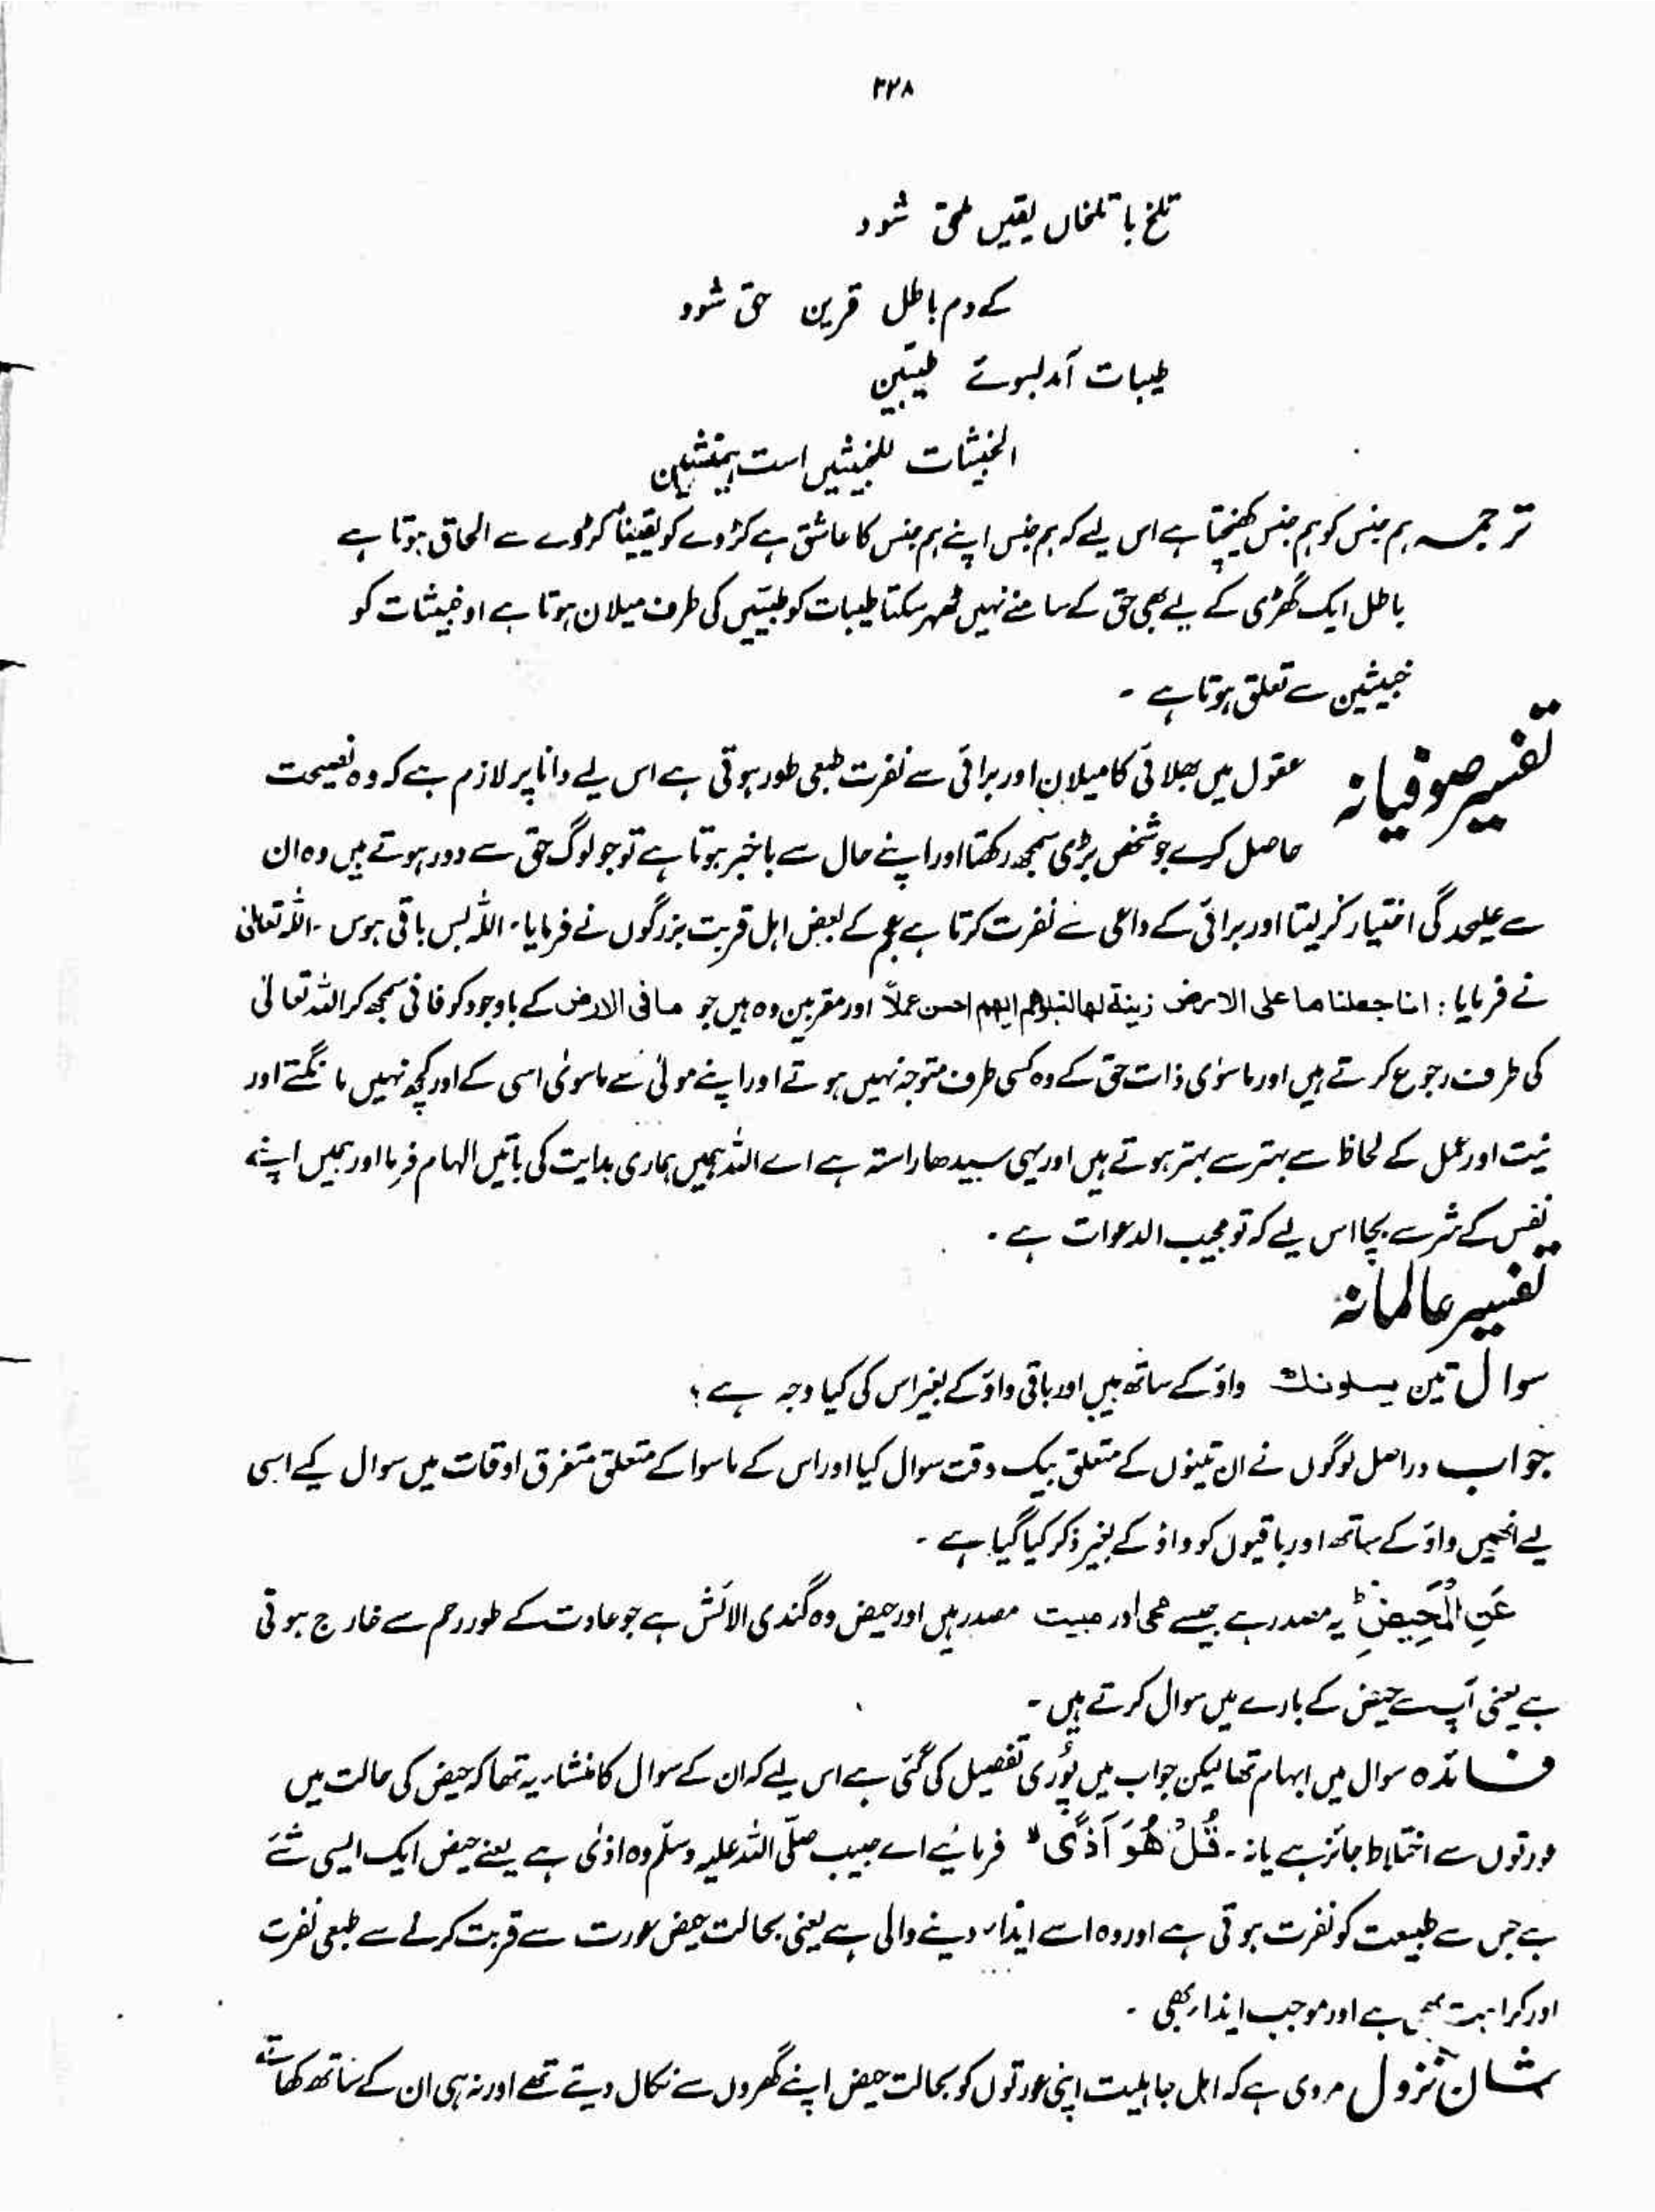 ۲۲۸
تلخ با تلخاں یقیں ملحق شود
کے دم باطل قرین حق شود
طیبات آمد بسوئے طیبین
الخبیثات للخبیثیں است ہمنشین
ترجمہ ہم جنس کو ہم جنس کھینچتا ہے اس لیے کہ ہم جنس اپنے ہم جنس کا عاشق ہے کڑوے کو یقیناً کڑوے سے الحاق ہوتا ہے
باطل ایک گھڑی کے لیے بھی حق کے سامنے نہیں ٹھہر سکتا طیبات کو طیبّیں کی طرف میلان ہوتا ہے او خبیثات کو
خبیثین سے تعلق ہوتا ہے ۔
تفسیر صوفیانہ عقول میں بھلائی کا میلان اور برائی سے نفرت طبعی طور ہوتی ہے اس لیے دانا پر لازم ہے کہ وہ نصیحت
حاصل کرے جو شخص بڑی سمجھ رکھتا اور اپنے حال سے باخبر ہوتا ہے تو جو لوگ حق سے دور ہوتے ہیں وہ ان
سے علیحدگی اختیار کر لیتا اور برائی کے داعی سے نفرت کرتا ہے عجم کے بعض اہل قربت بزرگوں نے فرمایا۔ اللہ بس باقی ہوس ۔ اللہ تعالیٰ
نے فرمایا : انا جعلنا ما علی الارض زینة لھا لنبلوھم ایھم احسن عملاً اور مقربین وہ ہیں جو مافی الارض کے باوجود کو فانی سمجھ کر اللہ تعالیٰ
کی طرف رجوع کرتے ہیں اور ماسوٰی ذات حق کے وہ کسی طرف متوجہ نہیں ہوتے اور اپنے مولیٰ سے ماسویٰ اسی کے اور کچھ نہیں مانگتے اور
نیت اور عمل کے لحاظ سے بہتر سے بہتر ہوتے ہیں اور یہی سیدھا راستہ ہے اے اللہ ہمیں ہماری ہدایت کی باتیں الہام فرما اور ہمیں اپنے
نفس کے شر سے بچا اس لیے کہ تو مجیب الدعوات ہے ۔
تفسیر عالمانہ
سوال تین یسلونک واؤ کے ساتھ ہیں اور باقی واؤ کے بغیر اس کی کیا وجہ ہے ؟
جواب دراصل لوگوں نے ان تینوں کے متعلق بیک وقت سوال کیا اور اس کے ماسوا کے متعلق متفرق اوقات میں سوال کیے اسی
لیے انھیں واؤ کے ساتھ اور باقیوں کو واؤ کے بغیر ذکر کیا گیا ہے ۔
عَنِ الْمَحِیضِ ؕ یہ مصدر ہے جیسے مجی اور مبیت مصدر ہیں اور حیض وہ گندی الائش ہے جو عادت کے طور رحم سے خارج ہوتی
ہے یعنی آپ سے حیض کے بارے میں سوال کرتے ہیں ۔
فائدہ سوال میں ابہام تھا لیکن جواب میں پُوری تفصیل کی گئی ہے اس لیے کہ ان کے سوال کا منشاء یہ تھا کہ حیض کی حالت میں
عورتوں سے اختلاط جائز ہے یا نہ ۔ قُلْ هُوَ اَذًی ۙ فرمائیے اے حبیب صلّی اللہ علیہ وسلّم وہ اذیٰ ہے یعنے حیض ایک ایسی شَے
ہے جس سے طبیعت کو نفرت ہوتی ہے اور وہ اسے ایذاء دینے والی ہے یعنی بحالت حیض عورت سے قربت کرنے سے طبعی نفرت
اور کراہت بھی ہے اور موجب ایذاء بھی ۔
شان نزول مروی ہے کہ اہل جاہلیت اپنی عورتوں کو بحالت حیض اپنے گھروں سے نکال دیتے تھے اور نہ ہی ان کے ساتھ کھاتے